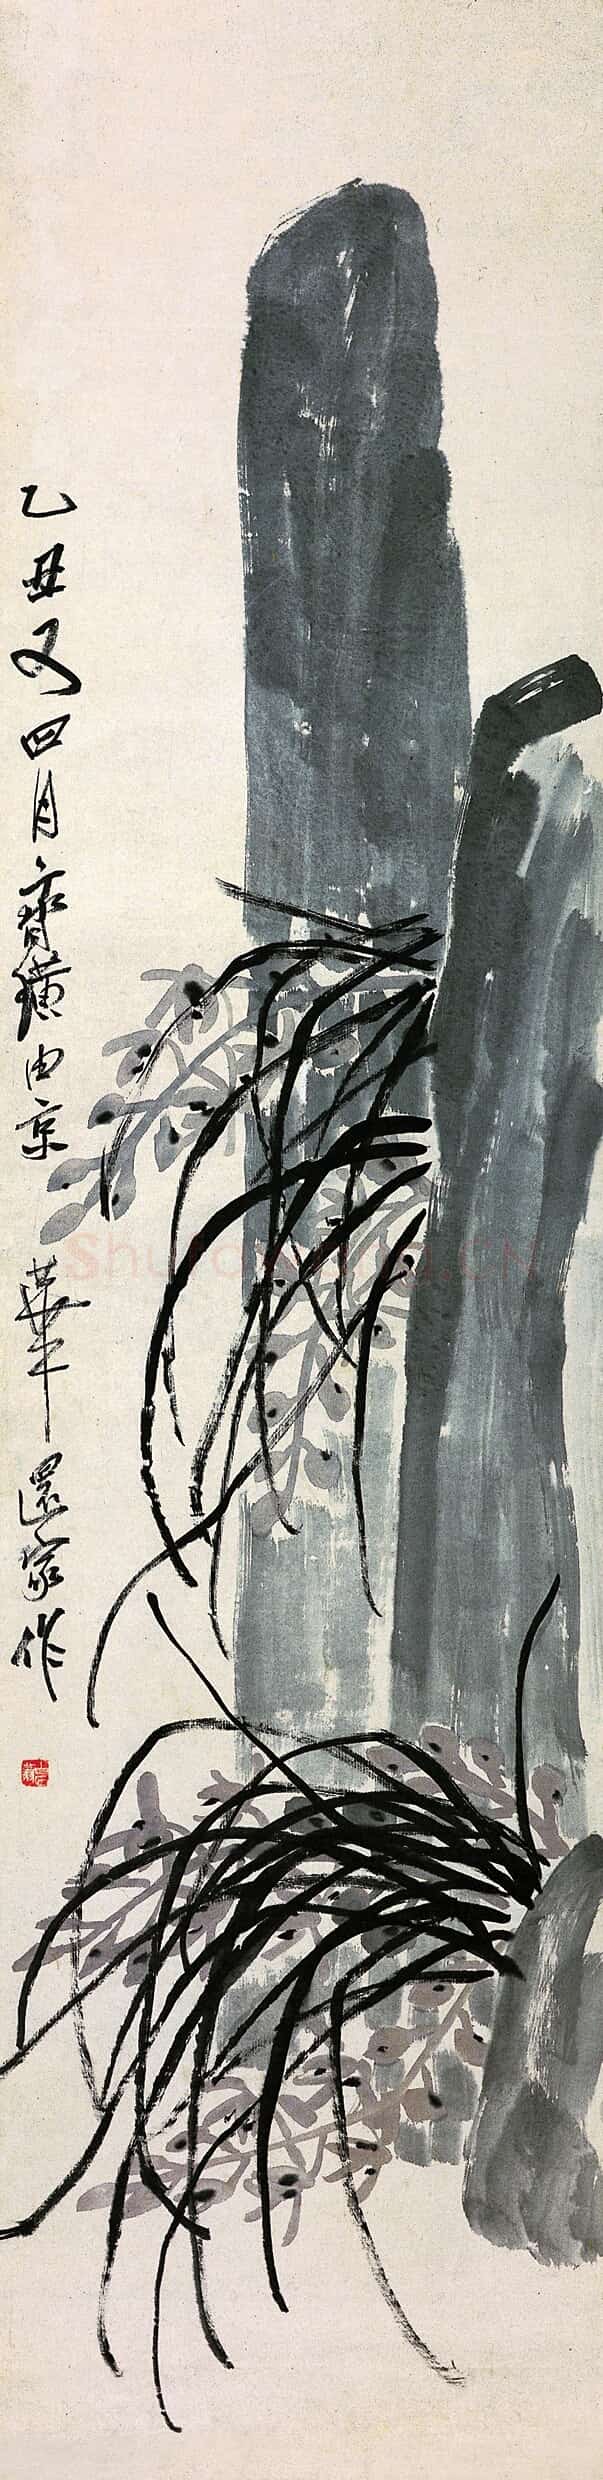 乙丑又四月齐璜由京華還家作
Shufawang.CN